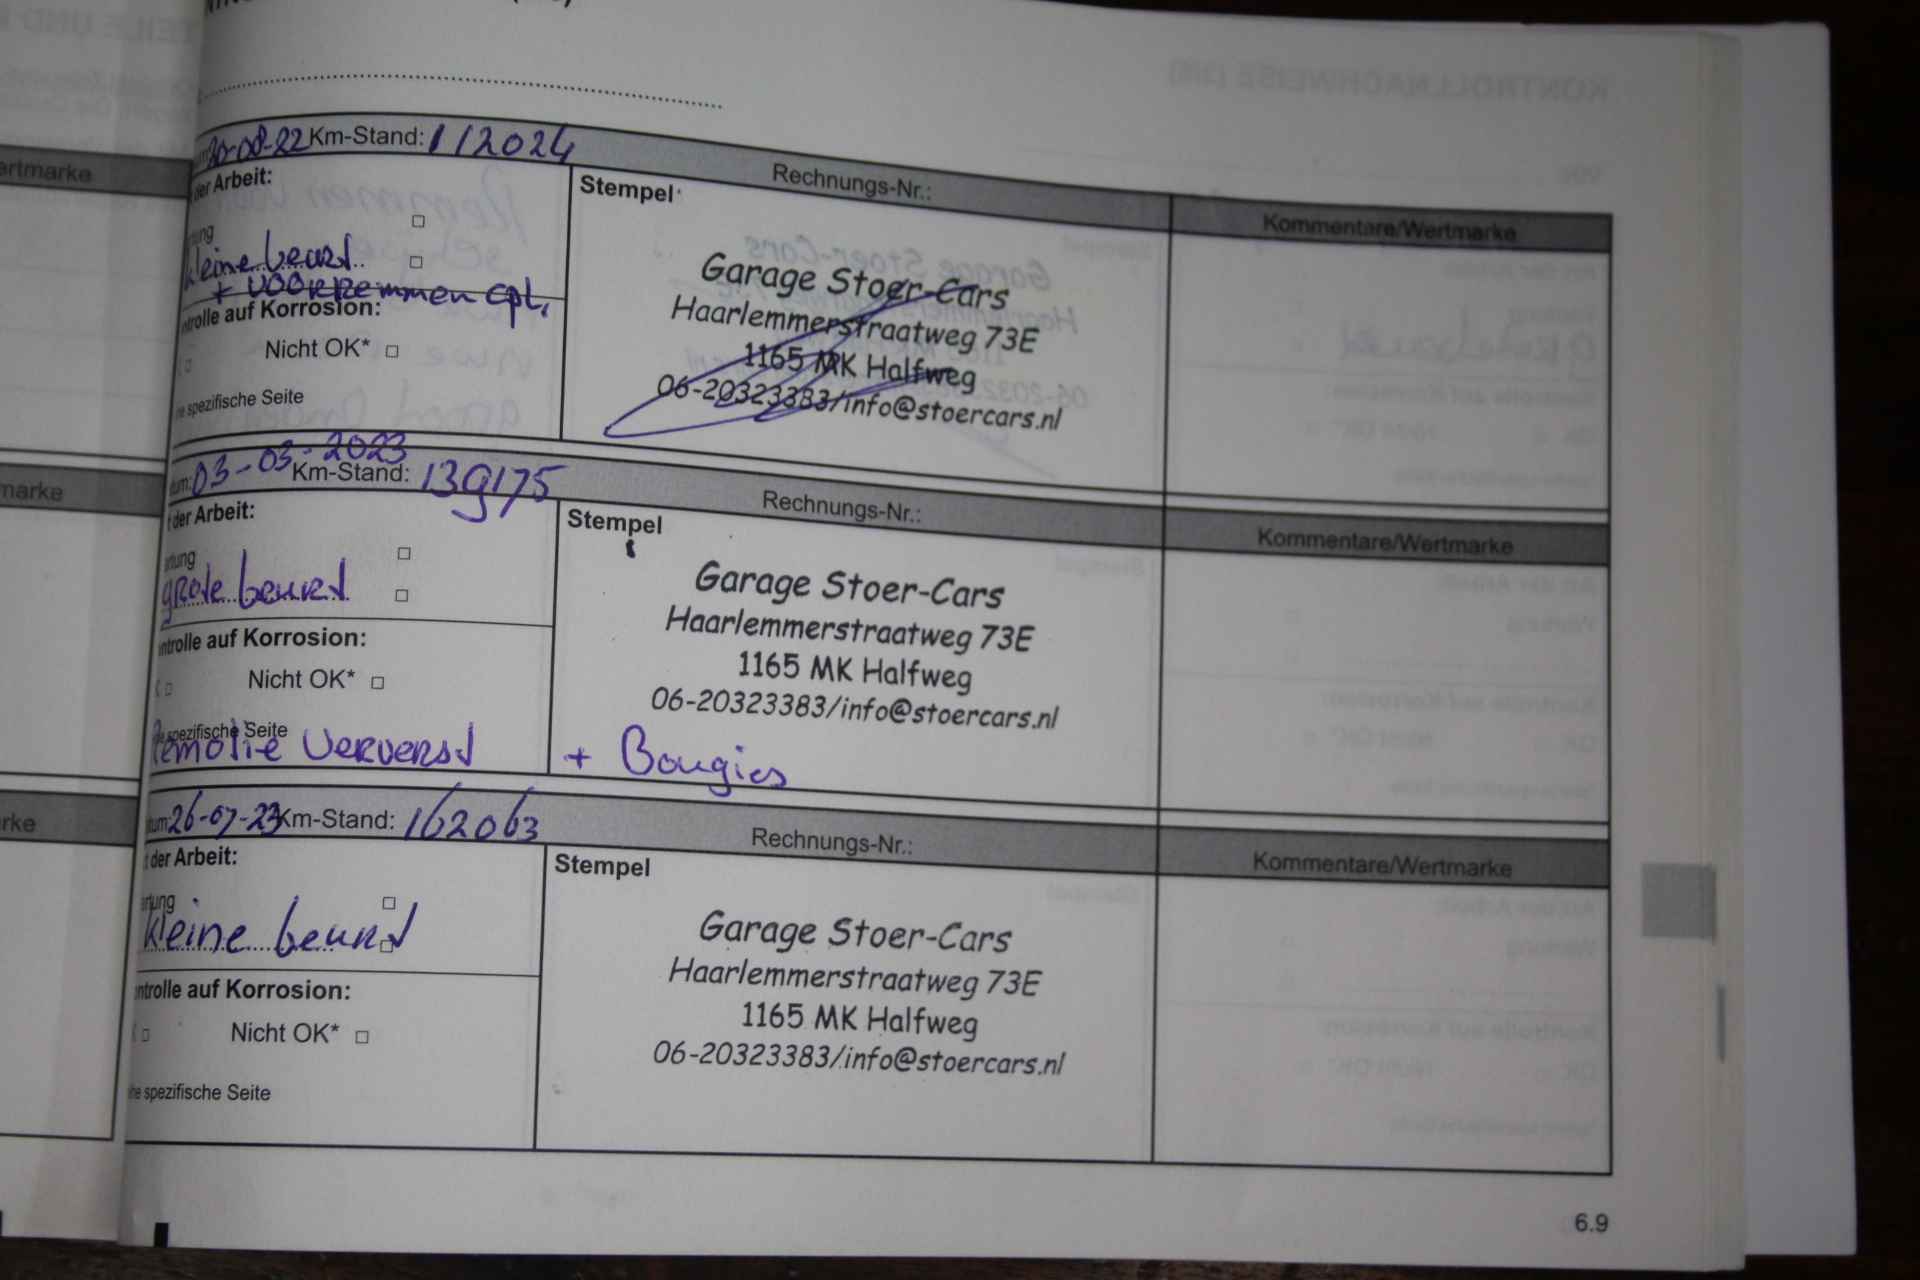 30-08-22 Km-Stand: 112024
Rechnungs-Nr.:
der Arbeit:
Stempel
Kommentare/Wertmarke
kleine beurt
+ voorremmen cpl.
Garage Stoer-Cars
Haarlemmerstraatweg 73E
1165 MK Halfweg
06-20323383/info@stoercars.nl
ntrolle auf Korrosion:
Nicht OK*
ne spezifische Seite
tum: 03-03-2023 Km-Stand: 139175
Rechnungs-Nr.:
t der Arbeit:
Stempel
Kommentare/Wertmarke
artung
grote beurt
Garage Stoer-Cars
Haarlemmerstraatweg 73E
1165 MK Halfweg
06-20323383/info@stoercars.nl
ntrolle auf Korrosion:
Nicht OK*
spezifische Seite
Remolie ververst + Bougies
tum: 26-07-23 Km-Stand: 162063
Rechnungs-Nr.:
t der Arbeit:
Stempel
Kommentare/Wertmarke
artung
kleine beurt
Garage Stoer-Cars
Haarlemmerstraatweg 73E
1165 MK Halfweg
06-20323383/info@stoercars.nl
ontrolle auf Korrosion:
Nicht OK*
ehe spezifische Seite
6.9
ertmarke
marke
rke